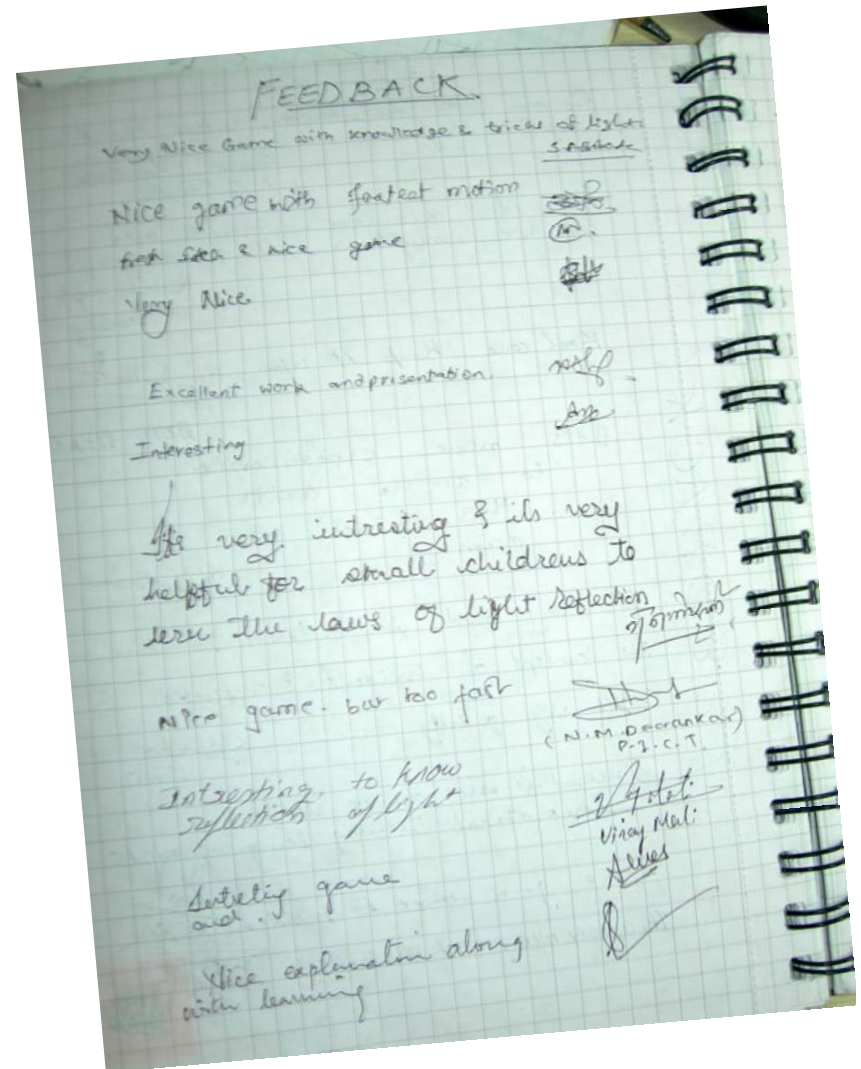 FEEDBACK
Very Nice Game with knowledge & tricks of light.
Nice game with fastest motion
fresh idea & nice game
Very Nice
Excellent work and prisentation.
Interesting
Its very intresting & its very
helpful for small childrens to
lern the laws of light reflection
Nice game. but too fast
(N.M. Deorankar)
P.I.C.T.
Intresting to know
reflection of light
Vinay Mali
game
and.
Nice explanation along
with learning